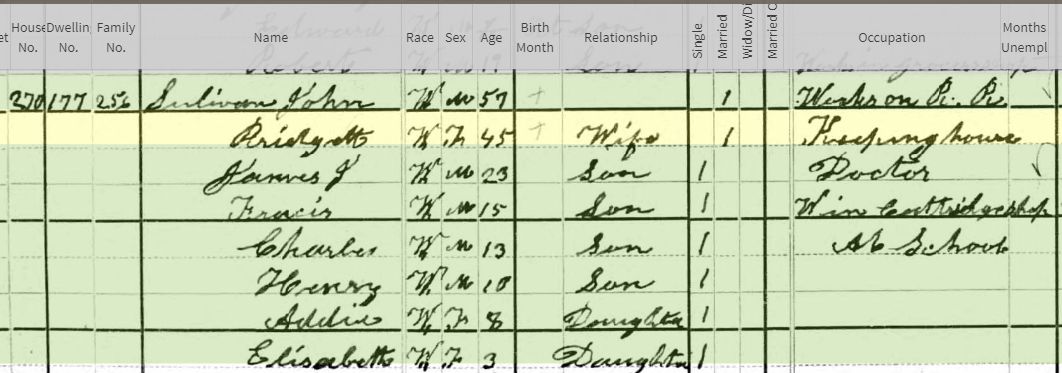 House No. Dwellin No. Family No. Name Race Sex Age Birth Month Relationship Single Married Widow/Di Married C Occupation Months Unempl
Robert W M 19 Son
270 177 256 Sulivan John W M 57 1 Works on R. R.
Bridgett W F 45 Wife 1 Keeping house
James J W M 23 Son 1 Doctor
Francis W M 15 Son 1 W in Cattridge shop
Charles W M 13 Son 1 At School
Henry W M 10 Son 1
Addie W F 8 Daughter 1
Elisabeth W F 3 Daughter 1